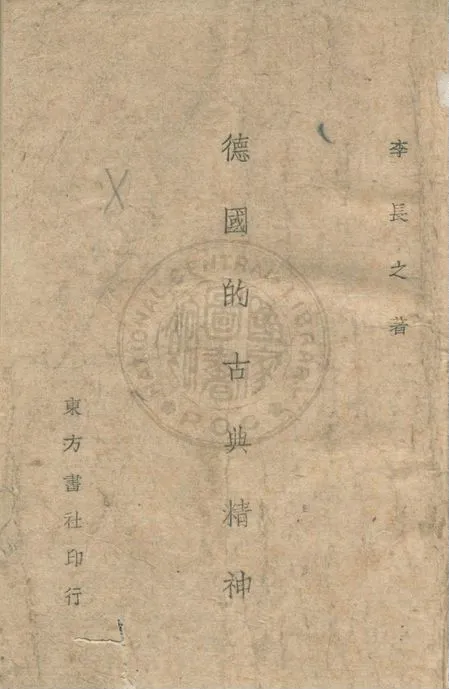 李長之著
德國的古典精神
東方書社印行
NATIONAL CENTRAL LIBRARY
R.O.C.